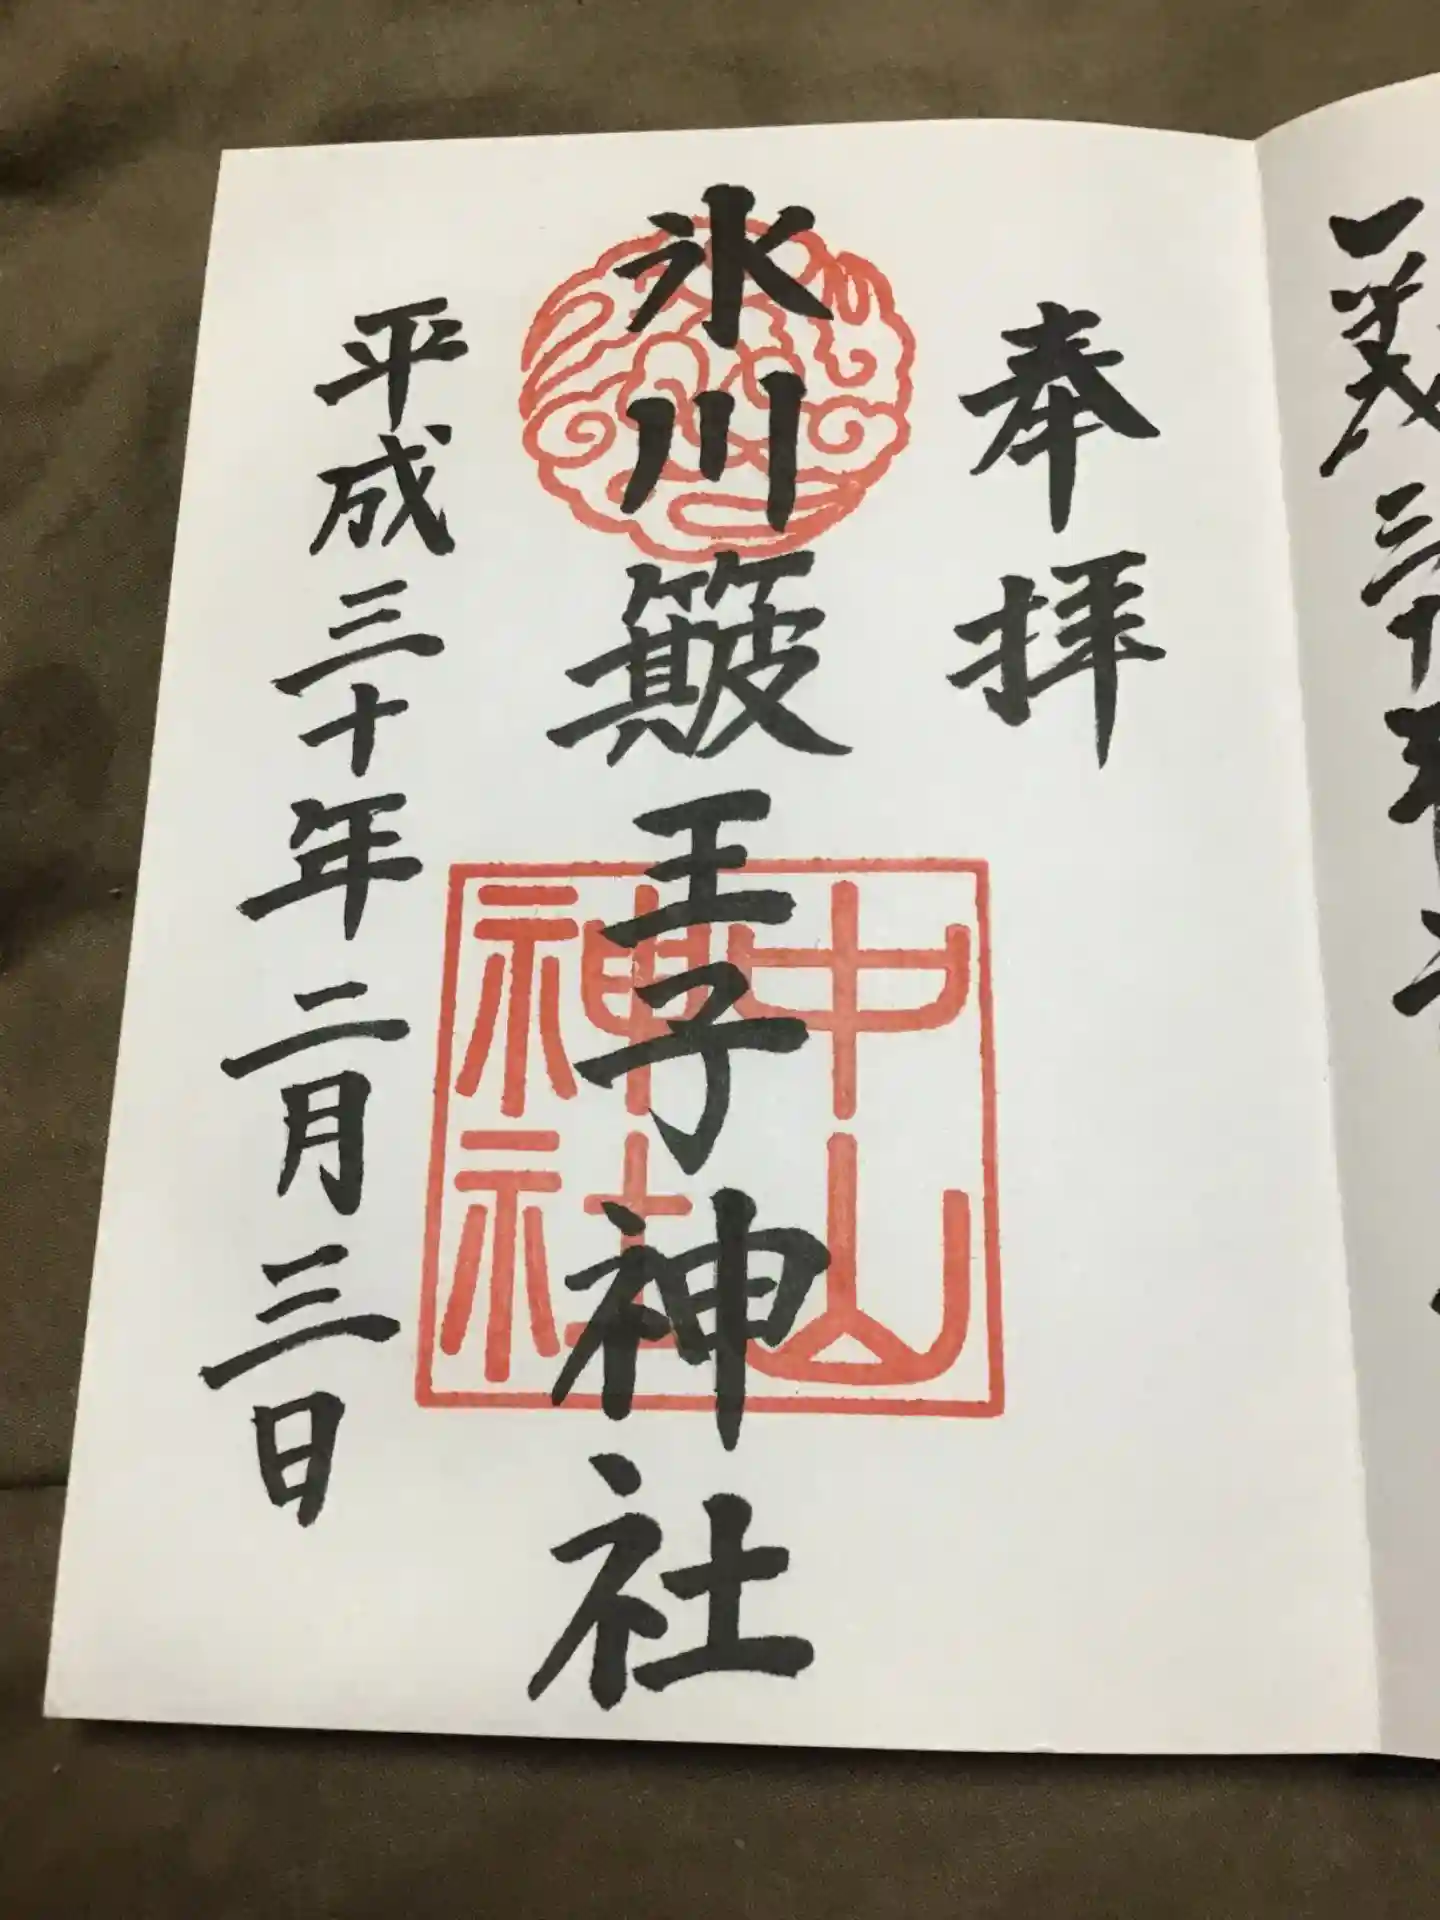 奉拝
氷川簸王子神社
中山神社
平成三十年二月三日